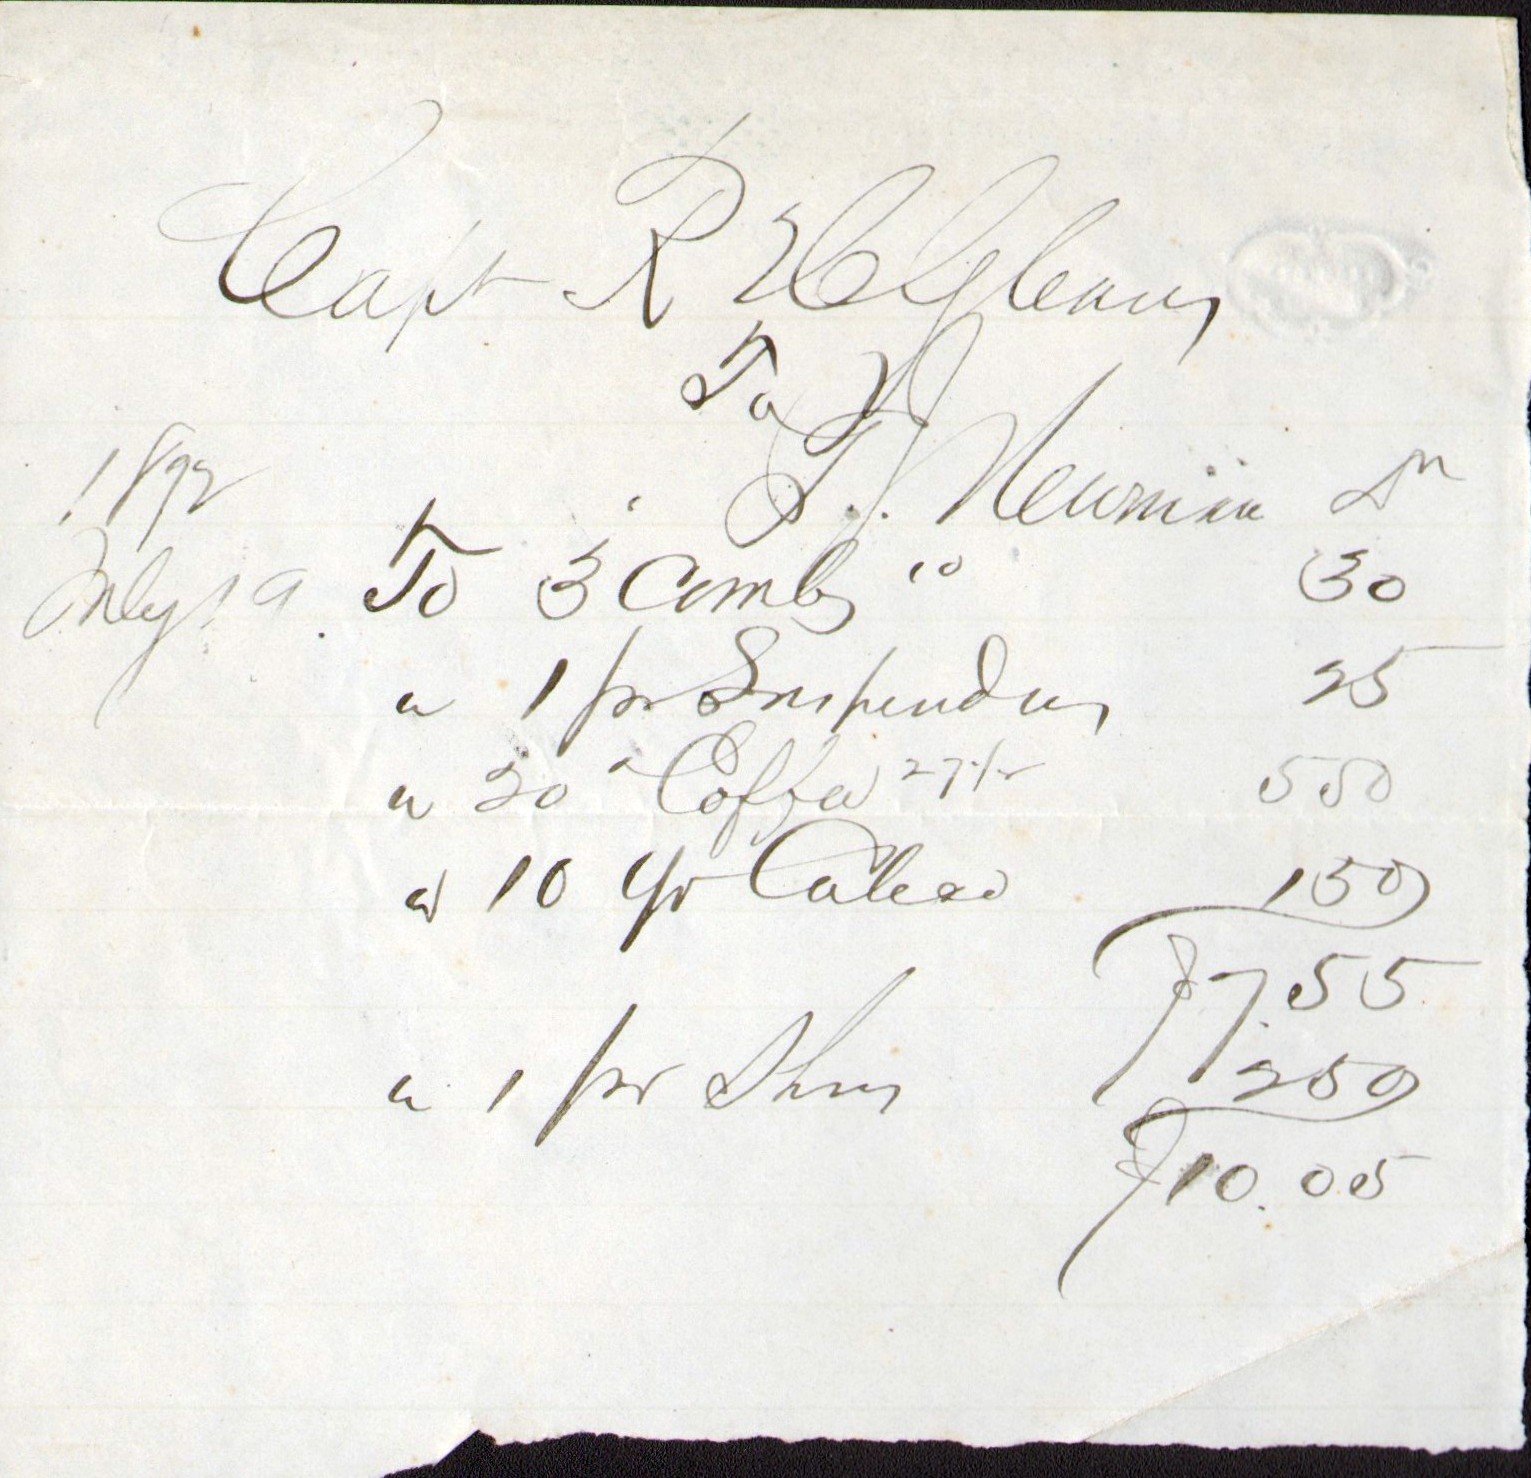 Capt R H Gleaves
To
T. J. Newman Dr
1892
July 19 To 3 Combs 10 30
" 1 pr Suspenders 25
" 20 " Coffee 27½ 550
" 10 yds Calico 150
$7.55
" 1 pr Shoes 250
$10.05